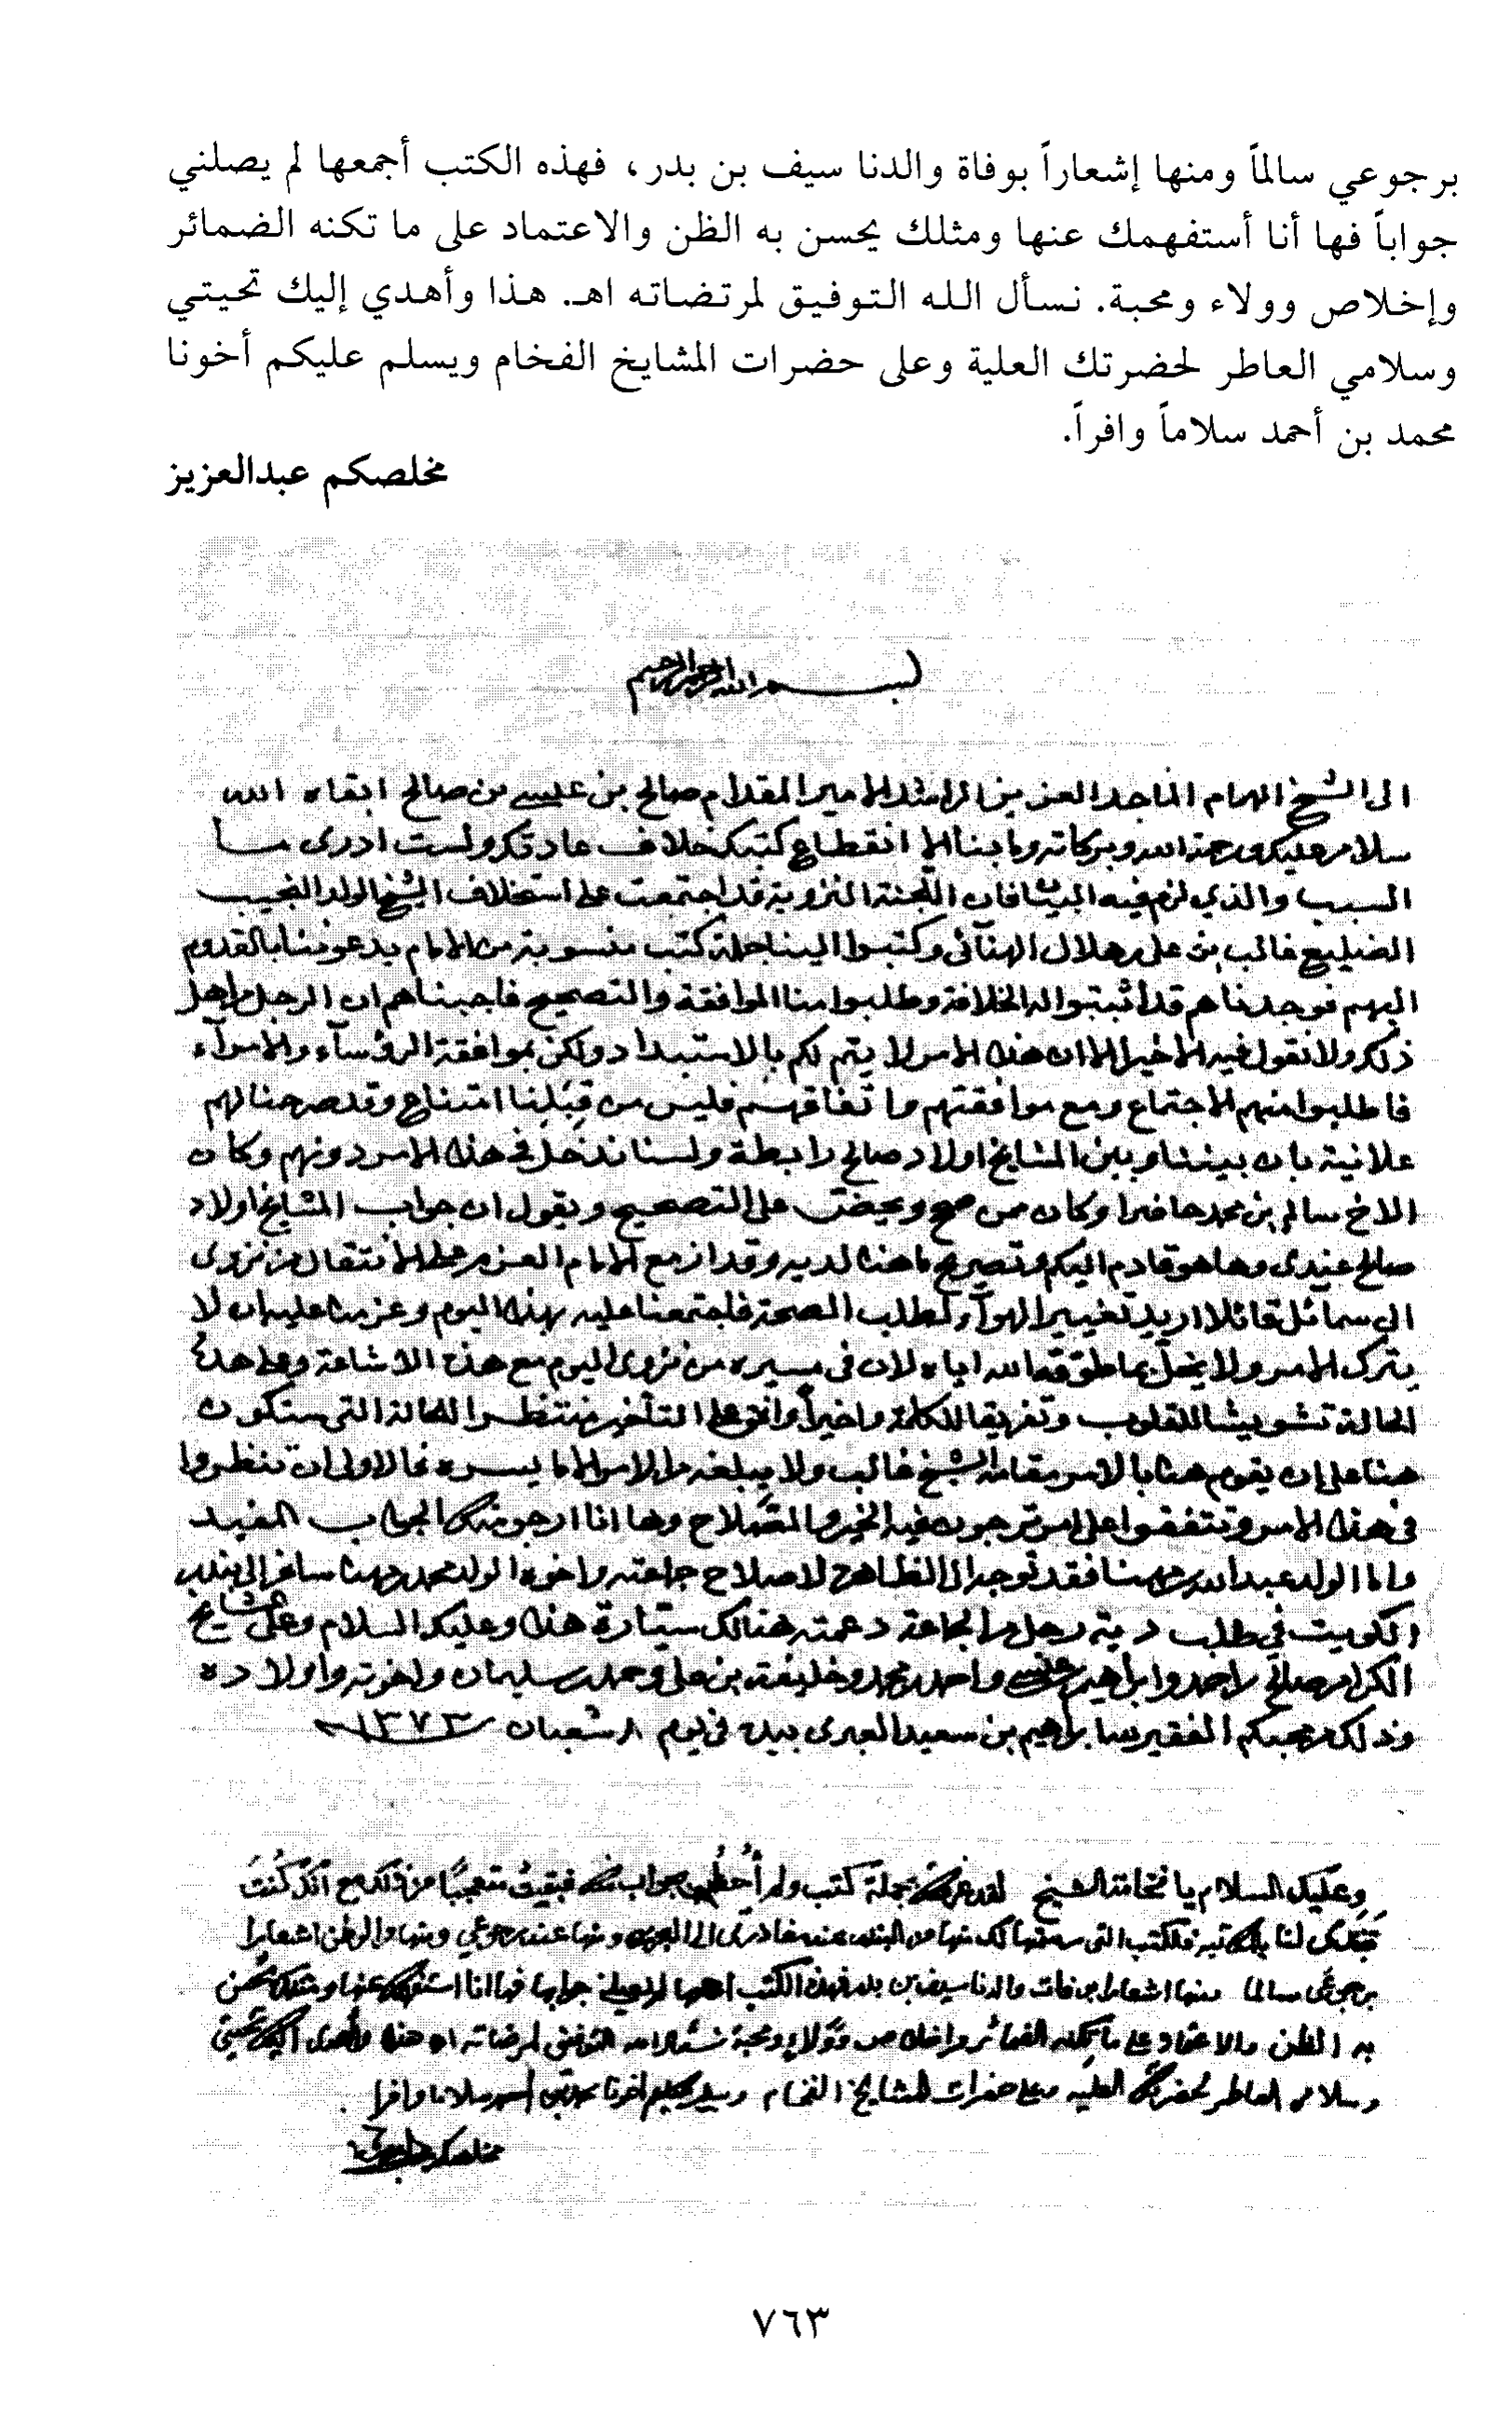 برجوعي سالماً ومنها إشعاراً بوفاة والدنا سيف بن بدر، فهذه الكتب أجمعها لم يصلني
جواباً فها أنا أستفهمك عنها ومثلك يحسن به الظن والاعتماد على ما تكنه الضمائر
وإخلاص وولاء ومحبة. نسأل الله التوفيق لمرتضاته اهـ. هذا وأهدي إليك تحيتي
وسلامي العاطر لحضرتك العلية وعلى حضرات المشايخ الفخام ويسلم عليكم أخونا
محمد بن أحمد سلاماً وافراً.
مخلصكم عبدالعزيز
بسم الله الرحمن الرحيم
الى الشيخ الهمام الماجد العزيز الراشد الامير المقدام صالح بن عيسى بن صالح ابقاه الله
سلام عليكم ورحمة الله وبركاته وما بنا الا انقطاع كتبك خلاف عادتكم ولست ادرى مــا
السبب والذي لزم فيه البث فان اللجنة النزوية قد اجتمعت على استخلاف الشيخ الولد النجيب
الضليع غالب بن علي بن هلال الهنآئى وكتبوا الينا جملة كتب منسوبة من الامام يدعوننا بالقدوم
اليهم فوجدناهم قد أثبتوا له الخلافة وطلبوا منا الموافقة والتصحيح فاجبناهم ان الرجل من اهل
ذلك ولا نقول فيه الا خيرا الا ان هذا الامر لا يتم لكم بالاستبداد ولكن بموافقة الرؤسآء والامرآء
فاطلبوا منهم الاجتماع ومع موافقتهم واتفاقهم فليس من قِبَلِنا امتناع وقد صرحنا لهم
علانية بان بيننا وبين المشايخ اولاد صالح رابطة ولسنا ندخل في هذا الامر دونهم وكان
الاخ سالم بن محمد حاضرا وكان ممن صحح ويحضّ على التصحيح ويقول ان جواب المشايخ اولاد
صالح عندى وها هو قادم اليكم وتصريح ما هنا لديه وقد ازمع الامام العزم على الانتقال من نزوى
الى سمائل قائلا اريد تغيير الهوآ ولطلب الصحة فاجتمعنا عليه بهذا اليوم وعزمنا عليه ان لا
يترك الامر ولا يخلّ بما طوّقه الله اياه لان فى مسيره من نزوى اليوم مع هذه الاشاعة وعلى هذهِ
الحالة تشويشا للقلوب وتفريقا للكلمة واخيراً وافق على التأخير فنتظر الحالة التى ستكون
هنا على ان يقوم هنا بالامر مقامه الشيخ غالب ولا يبلغه من الامر الا ما يسره فالاولى ان تنظروا
في هذا الامر وتتفقوا على امر ترجون فيه الخير والصّلاح وها انا ارجو منك الجواب المفيد
واما الولد عبد الله من هنا فقد توجه الى الظاهرة لاصلاح جماعته واخوه الولد محمد من هنا سافر الى بندر
الكويت في طلب دية رجل من الجماعة دعمته هنالك سيّارة هذا وعليك السلام وعلى المشايخ
الكرام صالح بن احمد وابراهيم بن عيسى واحمد بن محمد وخليفة بن علي وحمد بن سليمان واخوته واولاده
وذلك من محبكم الفقير ابراهيم بن سعيد العبرى بيده في يوم ٨ شعبان ١٣٧٣
وعليك السلام يا فخامة الشيخ لقد عرفتك بجملة كتب ولم أُحظَ بجواب منك فبقيت متعجبًا من ذلك مع أنك كنتَ
برجوعي سالما ومنها اشعارا بوفات والدنا سيف بن بدر فهذه الكتب اجمعها لم يصلني جوابها فها انا استفهمك عنها ومثلك يحسن
به الظن والاعتماد على ما تكنه الضمائر واخلاص وولاء ومحبة نسئل الله التوفيق لمرضاته اه هذا واهدى اليك تحيتي
وسلامى العاطر لحضرتك العليه وعلى حضرات المشايخ الفخام ويسلم عليكم اخونا محمد بن احمد سلاما وافرا .
٧٦٣